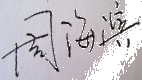 周海滨